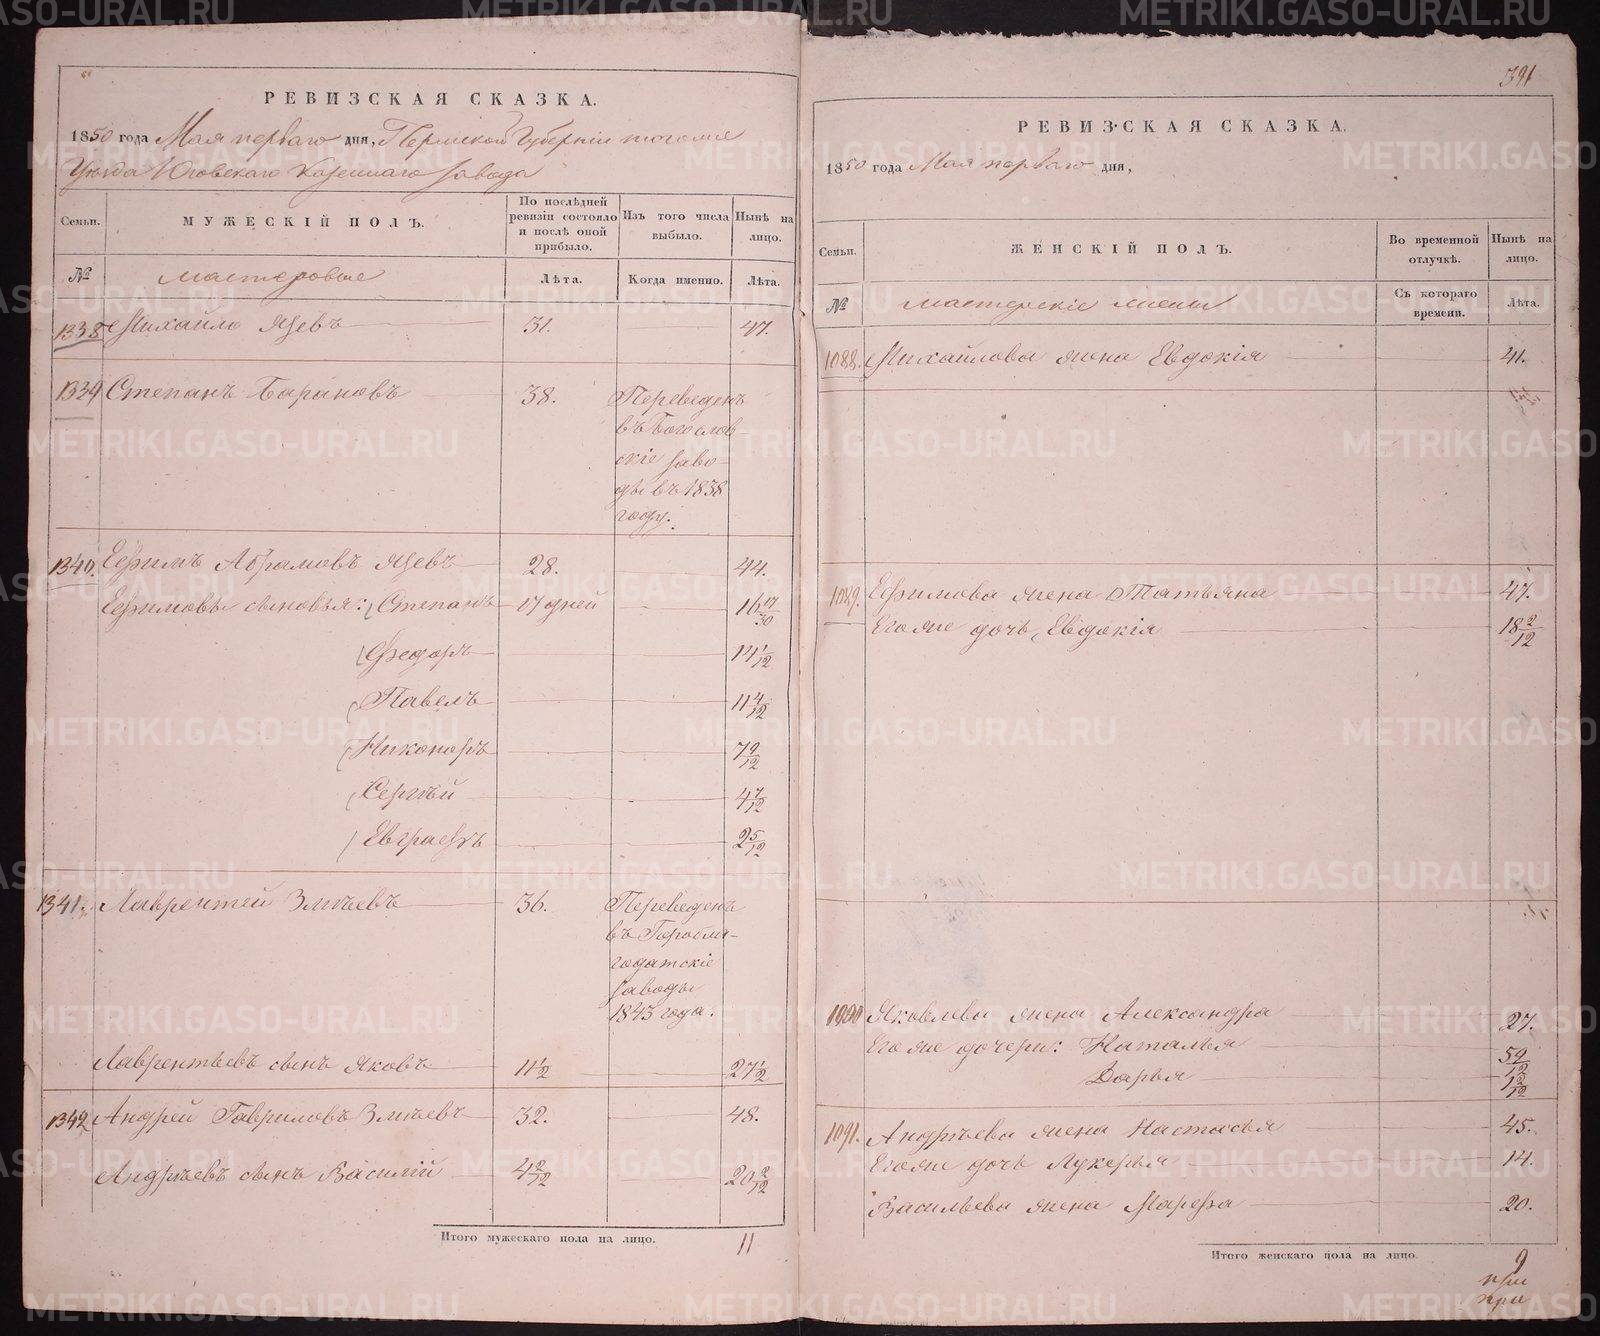 РЕВИЗСКАЯ СКАЗКА.
1850 года Мая перваго дня, Пермской Губерніи тогоже
Уѣзда Юговскаго Казеннаго завода
Семьи.
МУЖЕСКІЙ ПОЛЪ.
По послѣдней
ревизіи состояло
и послѣ оной
прибыло.
Изъ того числа
выбыло.
Нынѣ на
лицо.
№
Мастеровые
Лѣта.
Когда именно.
Лѣта.
1338 Михайло Ящевъ 31. 47.
1339 Степанъ Барановъ 38. Переведенъ
въ Богослов-
скіе заво-
ды въ 1838
году.
1340. Ефимъ Абрамовъ Ящевъ 28. 44.
Ефимовы сыновья: Степанъ 17 дней 16 17/30
Федоръ 14 1/12
Павелъ 11 4/12
Никоноръ 7 9/12
Сергѣй 4 7/12
Евграфъ 2 5/12
1341. Лаврентей Змѣевъ 36. Переведенъ
въ Горобла-
годатскіе
заводы
1843 года.
Лаврентьевъ сынъ Яковъ 11 1/2 27 1/2
1342 Андрей Гавриловъ Змѣевъ 32. 48.
Андрѣевъ сынъ Василій 4 2/12 20 2/12
Итого мужескаго пола на лицо. 11
391
РЕВИЗСКАЯ СКАЗКА.
1850 года Мая перваго дня,
Семьи.
ЖЕНСКІЙ ПОЛЪ.
Во временной
отлучкѣ.
Нынѣ на
лицо.
№
Мастерскіе жены
Съ котораго
времени.
Лѣта.
1088. Михайлова жена Евдокія 41.
1089. Ефимова жена Татьяна 47.
Егоже дочь Евдокія 18 2/12
1090 Яковлева жена Александра 27.
Егоже дочери: Наталья 5 9/12
Дарья 1 2/12
1091. Андрѣева жена Настасья 45.
Егоже дочь Лукерья 14.
Васильева жена Марфа 20.
Итого женскаго пола на лицо. 9
METRIKI.GASO-URAL.RU